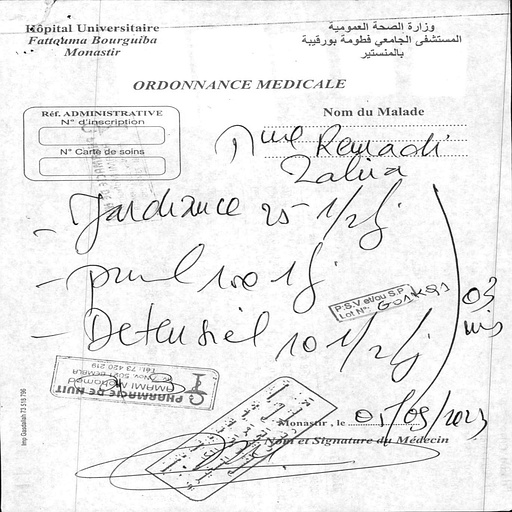 Hôpital Universitaire
Fattouma Bourguiba
Monastir
وزارة الصحة العمومية
المستشفى الجامعي فطومة بورقيبة
بالمنستير
ORDONNANCE MEDICALE
Réf. ADMINISTRATIVE
N° d'inscription
N° Carte de soins
Nom du Malade
Mme Ramadi
Zahia
- Jardiance 25 1/2/j
100 1/j
- Detensiel 10 1/2/j
03
mis
P.S.V et/ou S.P
Lot N°: G01K91
PHARMACIE DE NUIT
Monastir , le 05/09/2023
Nom et Signature du Médecin